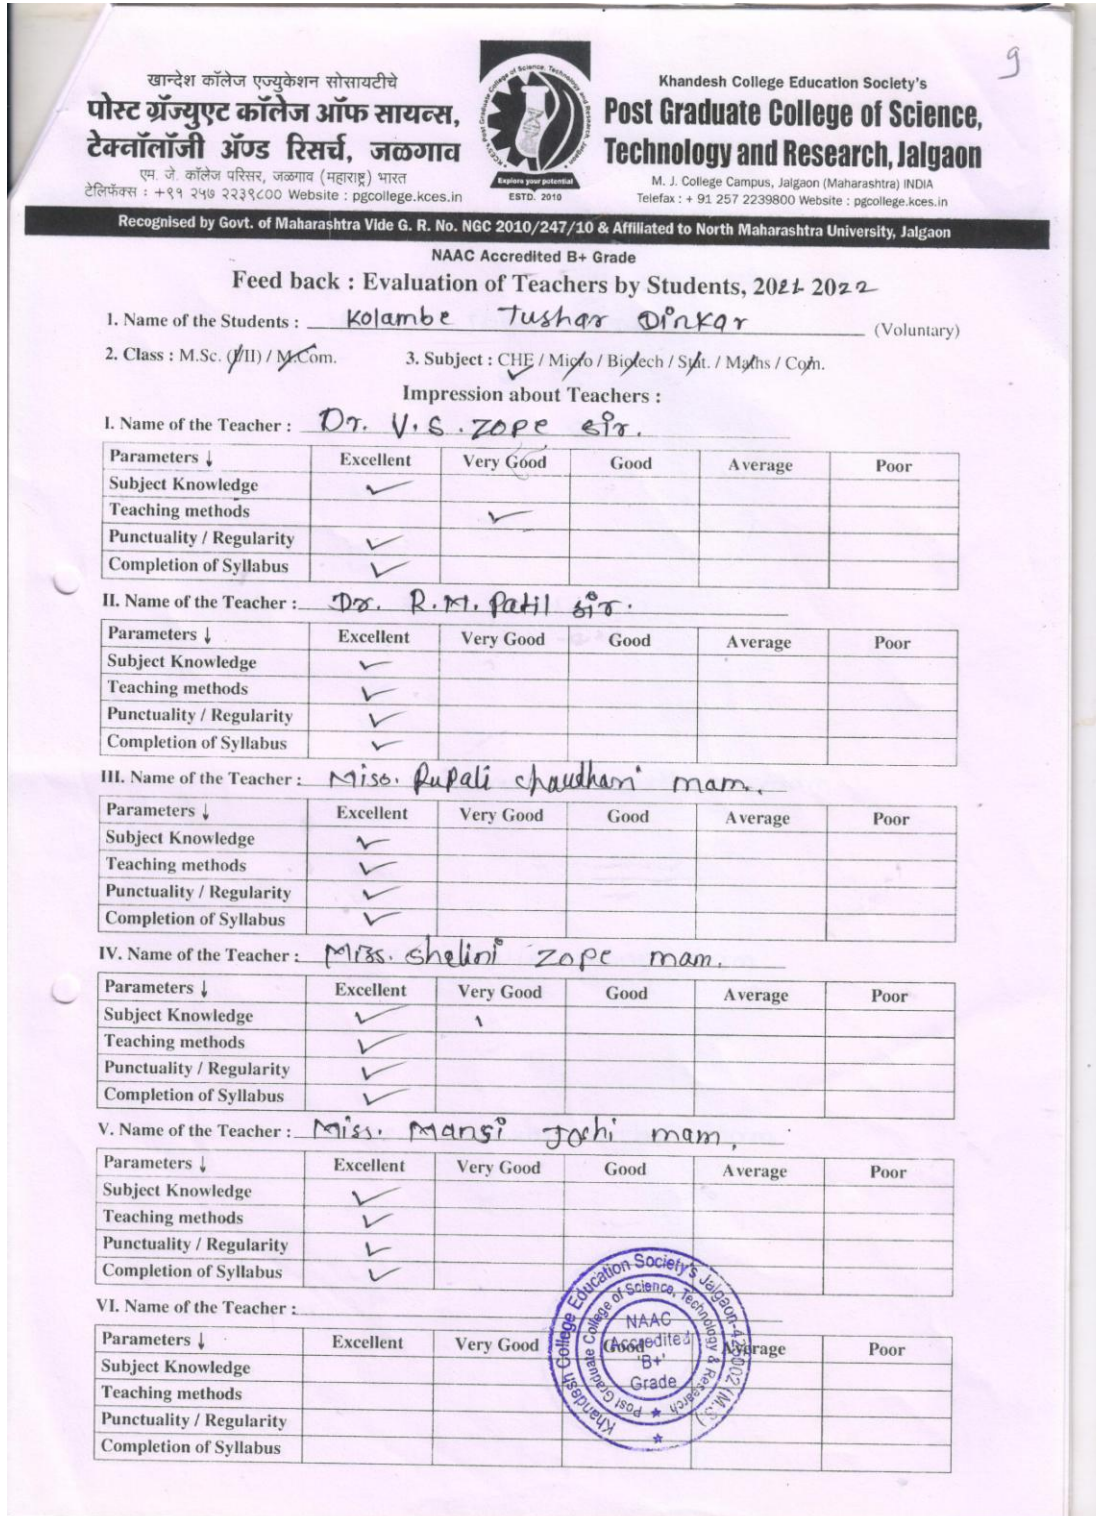 9
खान्देश कॉलेज एज्युकेशन सोसायटीचे
पोस्ट ग्रॅज्युएट कॉलेज ऑफ सायन्स,
टेक्नॉलॉजी ॲण्ड रिसर्च, जळगाव
एम. जे. कॉलेज परिसर, जळगाव (महाराष्ट्र) भारत
टेलिफॅक्स : +९१ २५७ २२३९८०० Website : pgcollege.kces.in
KCES's Post Graduate College of Science, Technology and Research, Jalgaon
Explore your potential
ESTD. 2010
Khandesh College Education Society's
Post Graduate College of Science,
Technology and Research, Jalgaon
M. J. College Campus, Jalgaon (Maharashtra) INDIA
Telefax : + 91 257 2239800 Website : pgcollege.kces.in
Recognised by Govt. of Maharashtra Vide G. R. No. NGC 2010/247/10 & Affiliated to North Maharashtra University, Jalgaon
NAAC Accredited B+ Grade
Feed back : Evaluation of Teachers by Students, 2021-2022
1. Name of the Students : Kolambe Tushar Dinkar (Voluntary)
2. Class : M.Sc. (I/II) / M.Com. 3. Subject : CHE / Micro / Biotech / Stat. / Maths / Com.
Impression about Teachers :
I. Name of the Teacher : Dr. V.S. Zope sir.
Parameters ↓ Excellent Very Good Good Average Poor
Subject Knowledge ✓
Teaching methods ✓
Punctuality / Regularity ✓
Completion of Syllabus ✓
II. Name of the Teacher : Dr. R.M. Patil sir.
Parameters ↓ Excellent Very Good Good Average Poor
Subject Knowledge ✓
Teaching methods ✓
Punctuality / Regularity ✓
Completion of Syllabus ✓
III. Name of the Teacher : Miss. Rupali chaudhari mam.
Parameters ↓ Excellent Very Good Good Average Poor
Subject Knowledge ✓
Teaching methods ✓
Punctuality / Regularity ✓
Completion of Syllabus ✓
IV. Name of the Teacher : Miss. Shalini Zope mam.
Parameters ↓ Excellent Very Good Good Average Poor
Subject Knowledge ✓
Teaching methods ✓
Punctuality / Regularity ✓
Completion of Syllabus ✓
V. Name of the Teacher : Miss. Mansi Joshi mam.
Parameters ↓ Excellent Very Good Good Average Poor
Subject Knowledge ✓
Teaching methods ✓
Punctuality / Regularity ✓
Completion of Syllabus ✓
VI. Name of the Teacher :
Parameters ↓ Excellent Very Good Good Average Poor
Subject Knowledge
Teaching methods
Punctuality / Regularity
Completion of Syllabus
Khandesh College Education Society's Jalgaon-425002 (M.S.)
Post Graduate College of Science, Technology & Research
NAAC
Accredited
'B+'
Grade